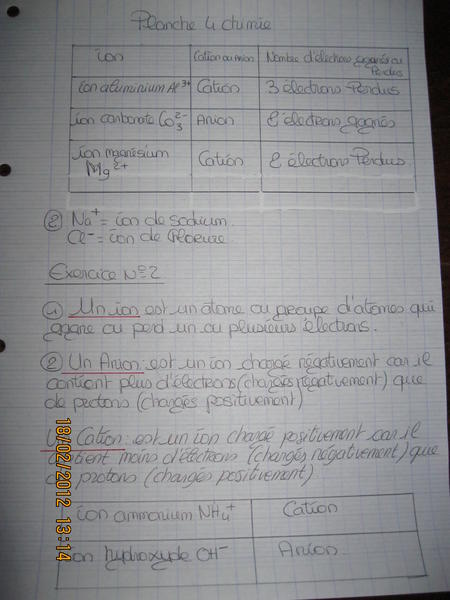 Planche 4 chimie
ion | Cation ou Anion | Nombre d'électrons gagnés ou Perdus
ion aluminium Al³⁺ | Cation | 3 électrons Perdus
ion carbonate CO₃²⁻ | Anion | 2 électrons gagnés
ion magnésium Mg²⁺ | Cation | 2 électrons Perdus
② Na⁺ = ion de sodium.
Cl⁻ = ion de chlorure.
Exercice N°2
① Un ion est un atome ou groupe d'atomes qui
gagne ou perd un ou plusieurs électrons.
② Un Anion : est un ion chargé négativement car il
contient plus d'électrons (chargés négativement) que
de protons (chargés positivement)
Cation : est un ion chargé positivement car il
contient moins d'électrons (chargés négativement) que
de protons (chargés positivement)
ion ammonium NH₄⁺ | Cation
ion hydroxyde OH⁻ | Anion
18/02/2012 13:14